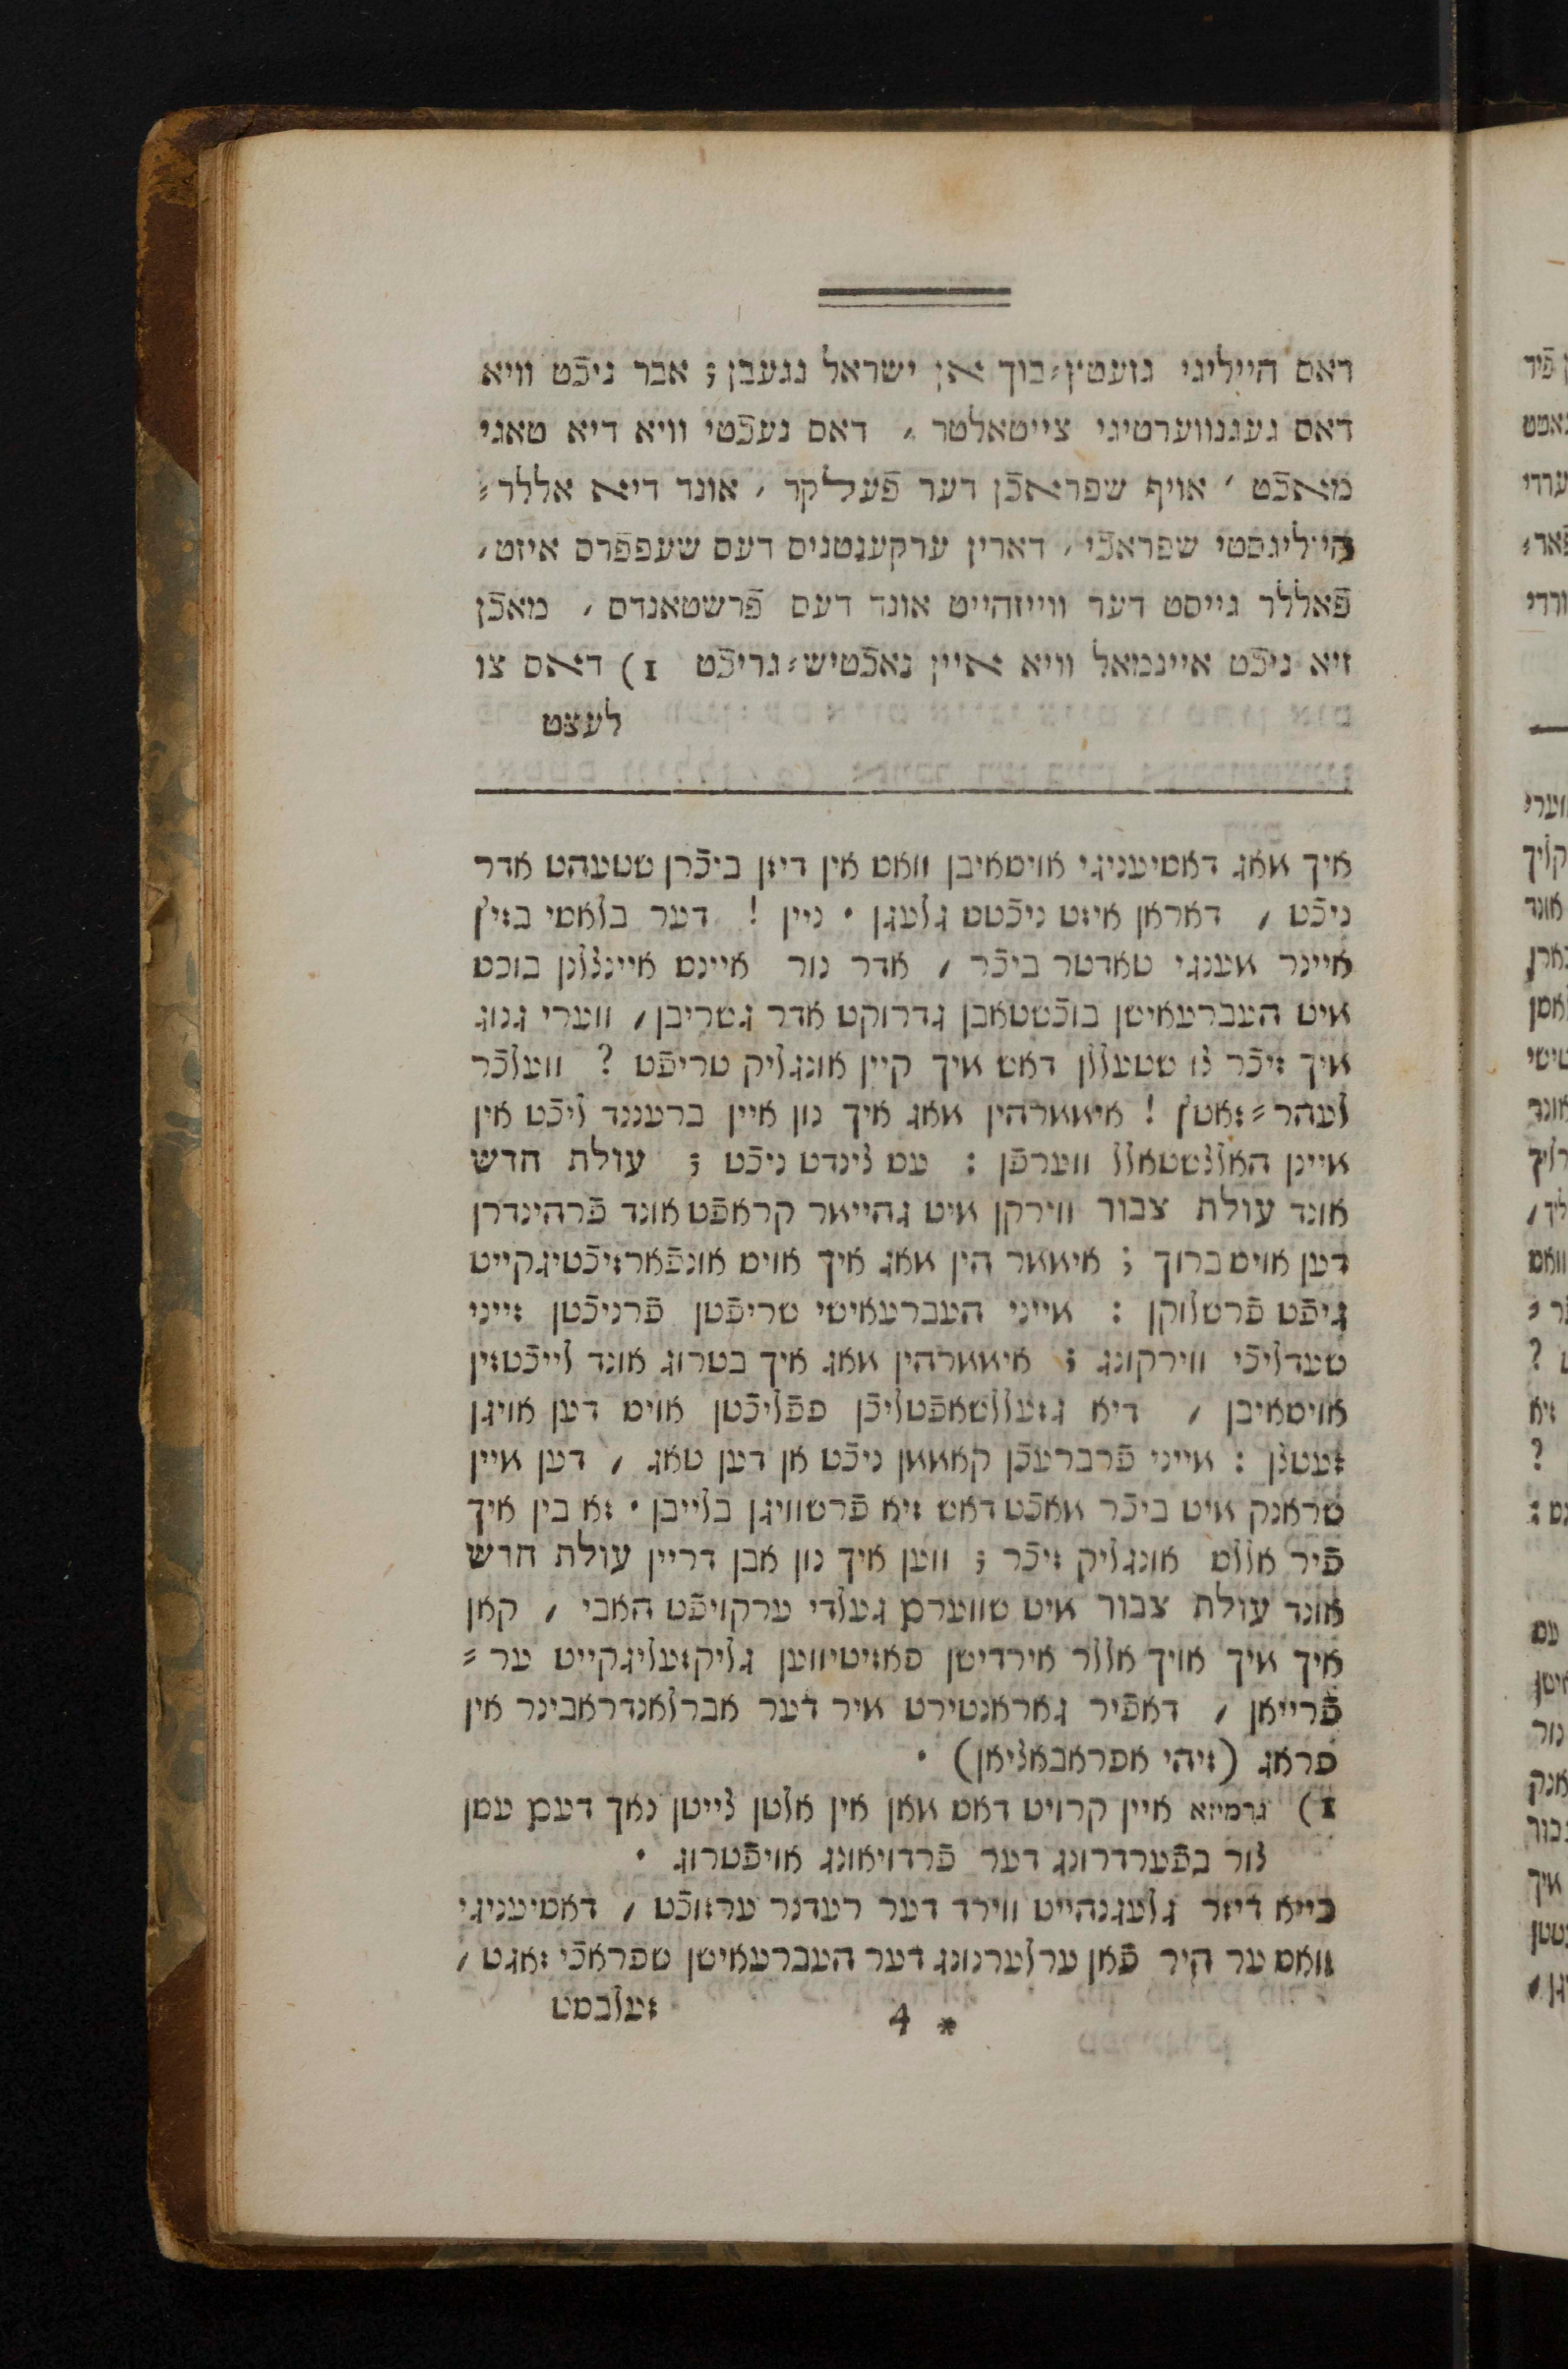 דאס הייליגי גזעטץ⸗בוך אן ישראל געגעבן ; אבר ניכֿט וויא
דאס געגנווערטיגי צייטאלטר , דאס נעכֿטי וויא דיא טאגי
מאכֿט , אויף שפראכֿן דער פֿעללקר , אונד דיא אללר⸗
הייליגסטי שפראכֿי , דארין ערקענטניס דעס שעפפֿרס איזט ,
פֿאללר גייסט דער ווייזהייט אונד דעס פֿרשטאנדס , מאכֿן
זיא ניכֿט איינמאל וויא איין נאכֿטיש⸗גריכֿט 1) דאס צו
לעצט
איך מאג דאסיעניגי אויסאיבן וואס אין דיזן ביכֿרן שטעהט אדר
ניכֿט , דאראן איזט ניכֿטס גלעגן . ניין ! דער בלאסי בזיץ
איינר מענגי טאדטר ביכֿר , אדר נור איינס איינצלן בוכס
מיט העברעאישן בוכֿשטאבן גדרוקט אדר גשריבן , ווערי גנוג
מיך זיכֿר צו שטעללן דאש מיך קיין אונגליק טריפֿט ? וועלכֿר
לעהר⸗זאטץ ! איממרהין מאג איך נון איין ברעננד ליכֿט אין
איינן האלצשטאלל ווערפֿן : עס צינדט ניכֿט ; עולת חדש
אונד עולת צבור ווירקן מיט גהיימר קראפֿט אונד פֿרהינדרן
דען אויסברוך ; איממר הין מאג איך אויס אונפֿארזיכֿטיגקייט
גיפֿט פֿרשלוקן : מייני העברעאישי שריפֿטן פֿרניכֿטן זייני
שעדליכֿי ווירקונג ; איממרהין מאג איך בטרוג אונד לייכֿטזין
אויסאיבן , דיא גזעללשאפֿטליכֿן פפֿליכֿטן אויס דען אויגן
זעטצן : מייני פֿרברעכֿן קאממן ניכֿט אן דען טאג , דען מיין
שראנק מיט ביכֿר מאכֿט דאש זיא פֿרשוויגן בלייבן . זא בין איך
פֿיר אללס אונגליק זיכֿר ; ווען איך נון אבן דריין עולת חדש
אונד עולת צבור מיט שווערם געלדי ערקויפֿט האבי , קאן
איך מיך אויך אללר אירדישן פאזיטיווען גליקזעליגקייט ער⸗
פֿרייאן , דאפֿיר גאראנטירט מיר דער אברלאנדראבינר אין
פראג (זיהי אפראבאציאן) .
1) גרמיזא איין קרויט דאס מאן אין אלטן צייטן נאך דעם עסן
צור בפֿערדרונג דער פֿרדויאונג אויפֿטרוג .
בייא דיזר געלעגנהייט ווירד דער רעדנר ערזוכֿט , דאסיעניגי
וואס ער היר פֿאן ערלערנונג דער העברעאישן שפראכֿי זאגט ,
* 4 זעלבסט